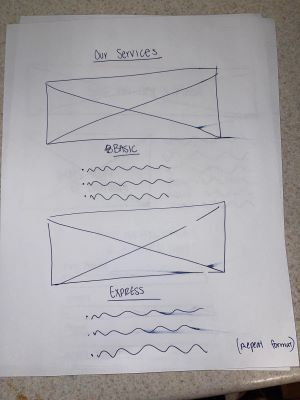 Our Services
BASIC
EXPRESS
(repeat format)